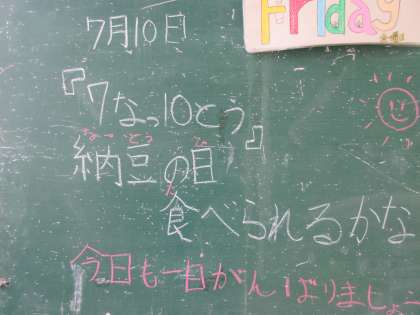 Friday
7月10日
『7なっ10とう』
なっとう
納豆の日
た
食べられるかな
今日も一日がんばりましょう